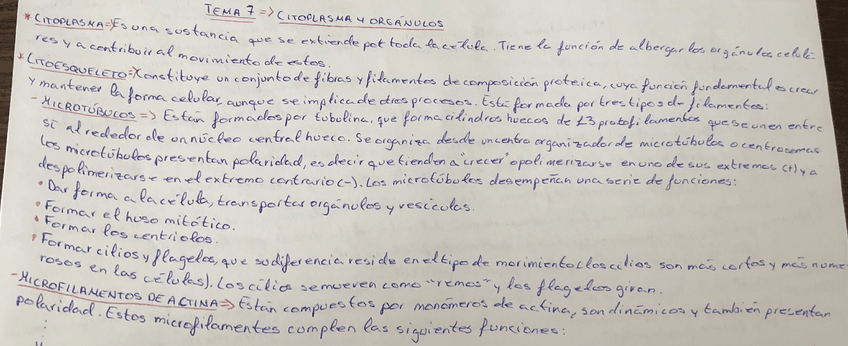 TEMA 7 => CITOPLASMA Y ORGÁNULOS
* CITOPLASMA => Es una sustancia que se extiende por toda la célula. Tiene la función de albergar los orgánulos celula-
res y a contribuir al movimiento de estos.
* CITOESQUELETO => Constituye un conjunto de fibras y filamentos de composición proteica, cuya función fundamental es crear
y mantener la forma celular, aunque se implica de otros procesos. Está formada por tres tipos de filamentos:
- MICROTÚBULOS => Están formados por tubulina, que forma cilindros huecos de 13 protofilamentos que se unen entre
sí alrededor de un núcleo central hueco. Se organiza desde un centro organizador de microtúbulos o centrosomas
Los microtúbulos presentan polaridad, es decir que tienden a "crecer" o polimerizarse en uno de sus extremos (+) y a
despolimerizarse en el extremo contrario (-). Los microtúbulos desempeñan una serie de funciones:
• Dar forma a la célula, transportar orgánulos y vesículas.
• Formar el huso mitótico.
• Formar los centriolos.
• Formar cilios y flagelos, que su diferencia reside en el tipo de movimiento (los cilios son más cortos y más nume-
rosos en las células). Los cilios se mueven como "remos" y los flagelos giran.
- MICROFILAMENTOS DE ACTINA => Están compuestos por monómeros de actina, son dinámicos y también presentan
polaridad. Estos microfilamentos cumplen las siguientes funciones: